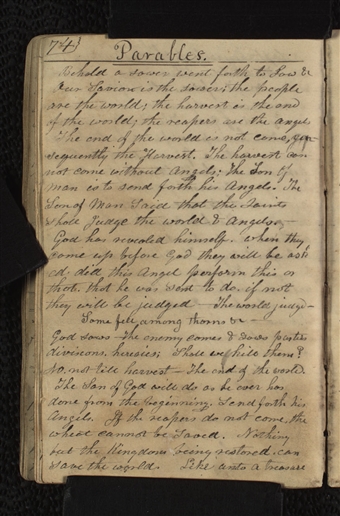 74)
Parables.
Behold a sower went forth to Sow &
Our Saviour is the sower; the people
are the world; the harvest is the end
of the world; the reapers are the Angels
The end of the world is not come, con
sequently the Harvest. The harvest can
not come without Angels; The Son of
man is to send forth his Angels. The
Son of Man Said that the Saints
shall Judge the world & Angels,
God has revealed himself. when they
come up before God they will be ask
ed, did this Angel perform this or
that. that he was sent to do. if not
they will be judged — The world judge —
Some fell among thorns &c —
God sows — The enemy comes & sows parties
divisions, heresies; Shall we kill them?
No, not till harvest — The end of the world.
The Son of God will do as he ever has
done from the beginning. Send forth his
Angels. If the reapers do not come, the
wheat cannot be Saved. Nothing
but the Kingdom being restored, can
save the world. Like unto a treasure